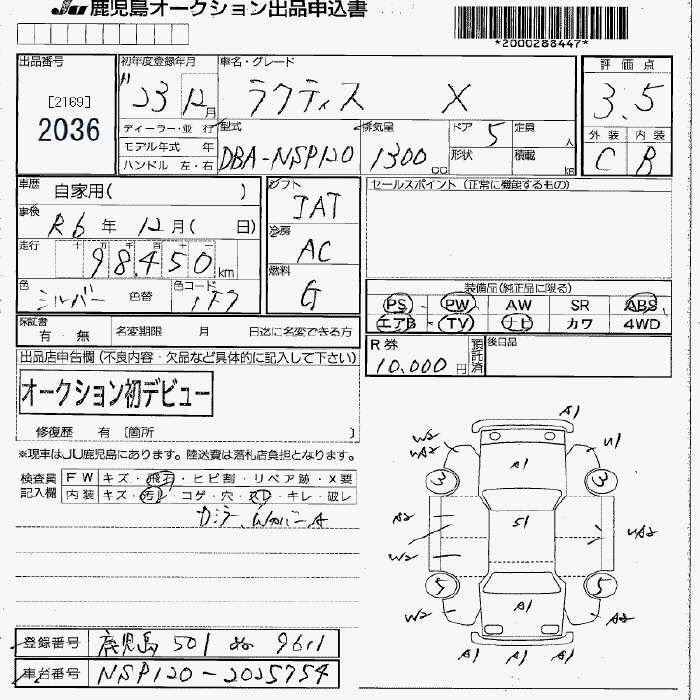 JU 鹿児島オークション出品申込書
*2000288447*
出品番号
[2169]
2036
初年度登録年月
23 12月
ディーラー・並 行
モデル年式 年
ハンドル 左・右
車名・グレード
ラクティス X
型式
DBA-NSP120
排気量
1300 cc
ドア 5
定員 人
形状
積載 kg
評 価 点
3.5
外 装 内 装
C B
車歴 自家用( )
車検 R6 年 12月( 日)
走行 十 万 千 百 十 一
98,450 km
色 シルバー 色替
色コード 1F7
シフト
IAT
冷房
AC
燃料
G
セールスポイント (正常に機能するもの)
装備品(純正品に限る)
PS PW AW SR ABS
エアB TV ナビ カワ 4WD
保証書
有 ・ 無
名変期限 月 日迄に名変できる方
R 券
10,000円
預託済
後日品
出品店申告欄 (不良内容・欠品など具体的に記入して下さい)
オークション初デビュー
修復歴 有 〔箇所 〕
※現車はJU鹿児島にあります。陸送費は落札店負担となります。
検査員
記入欄
FW キズ・飛石・ヒビ割・リペア跡・X要
内装 キズ・汚れ・コゲ・穴・スレ・キレ・破レ
登録番号 鹿児島 501 ぬ 9611
車台番号 NSP120-2025754
A1
W2
UA2
U1
A1
3
3
A2
S1
UA2
W2
5
5
W2
A1
A2
A1 A1 A1